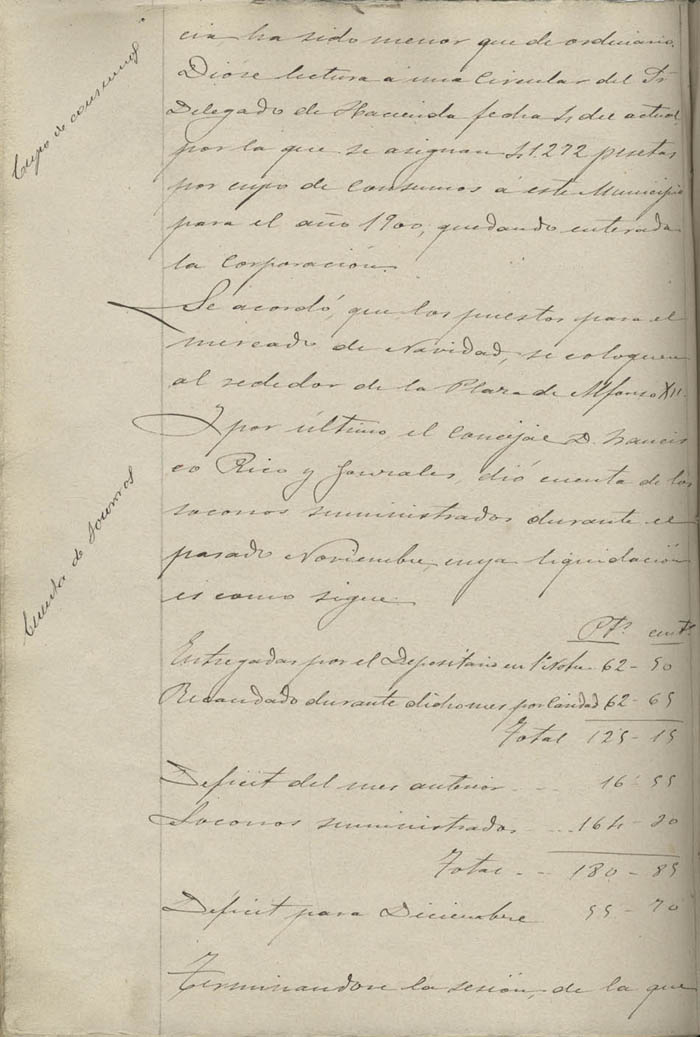 cia, ha sido menor que de ordinario.
Cupo de consumos
Dióse lectura á una Circular del Sr
Delegado de Hacienda fecha 4 del actual
por la que se asignan 41.272 pesetas
por cupo de consumos á este Municipio
para el año 1900, quedando enterada
la Corporación.
Se acordó, que los puestos para el
mercado de Navidad, se coloquen
al rededor de la Plaza de Alfonso XII.
Y por último el Concejal D. Francis
co Rico y Gonzales, dió cuenta de los
Cuenta de Socorros
socorros suministrados durante el
pasado Noviembre, cuya liquidación
es como sigue.
Pts. cents.
Entregadas por el Depositario en 1º Novbre. 62-50
Recaudado durante dicho mes por Caridad 62-65
Total 125-15
Deficit del mes anterior 16-55
Socorros suministrados 164-30
Total 180-85
Déficit para Diciembre 55-70
Terminandose la sesión, de la que